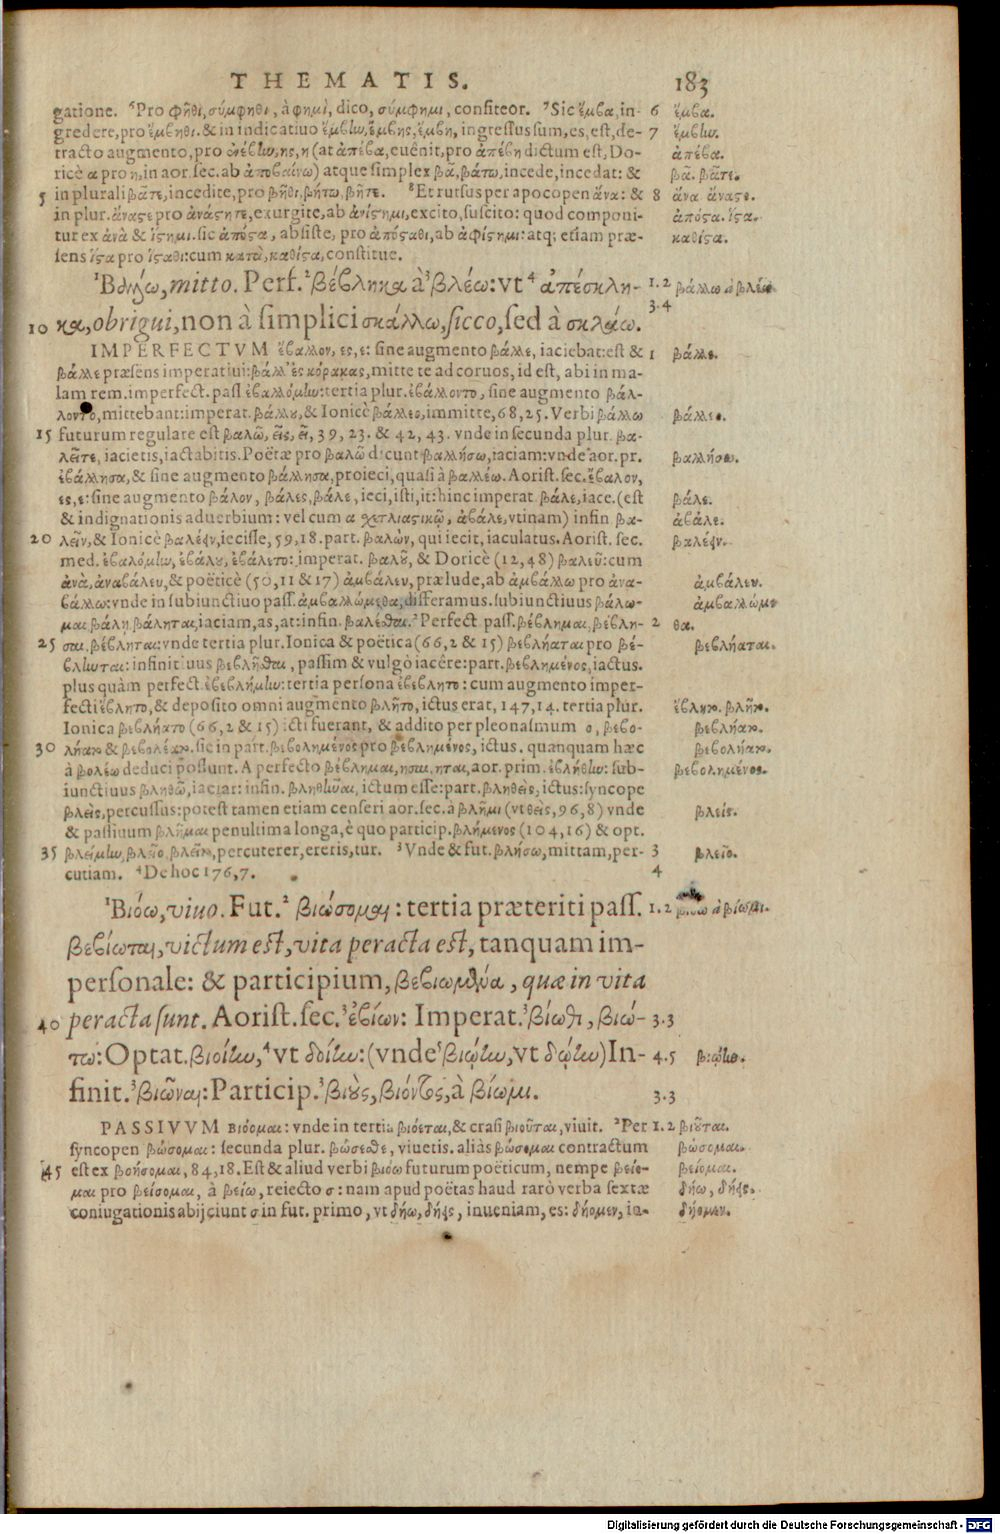 THEMATIS. 183
gatione. ⁶Pro φῆθι, σύμφηθι, à φημὶ, dico, σύμφημι, confiteor. ⁷Sic ἔμβα, in- 6 ἔμβα.
gredere, pro ἔμβηθι. & in indicatiuo ἔμβην, ἔμβης, ἔμβη, ingressus sum, es, est, de- 7 ἔμβην.
tracto augmento, pro ἐνέβην, ης, η (at ἀπέβα, euênit, pro ἀπέβη dictum est, Do- ἀπέβα.
ricè α pro η, in aor. sec. ab ἀποβαίνω) atque simplex βᾶ, βάτω, incede, incedat: & βᾶ. βᾶτε.
5 in plurali βᾶτε, incedite, pro βῆθι, βήτω, βῆτε. ⁸Et rursus per apocopen ἄνα: & 8 ἄνα ἄναστε.
in plur. ἄναστε pro ἀνάστητε, exurgite, ab ἀνίστημι, excito, suscito: quod componi- ἀπόστα. ἵστα.
tur ex ἀνὰ & ἵστημι. sic ἀπόστα, absiste, pro ἀπόσταθι, ab ἀφίστημι: atq; etiam præ- καθίστα.
sens ἵστα pro ἵσταθι: cum κατὰ, καθίστα, constitue.
¹Βάλλω, mitto. Perf. ²βέβληκα à ³βλέω: vt ⁴ ἀπέσκλη- 1.2 βάλλω ὁ βλέω
3.4
10 κα, obrigui, non à simplici σκάλλω, sicco, sed à σκλάω.
IMPERFECTVM ἔβαλλον, ες, ε: sine augmento βάλλε, iaciebat: est & 1 βάλλε.
βάλλε præsens imperatiui: βάλλ' ἐς κόρακας, mitte te ad coruos, id est, abi in ma-
lam rem. imperfect. pass ἐβαλλόμην: tertia plur. ἐβάλλοντο, sine augmento βάλ-
λοντο, mittebant: imperat. βάλλου, & Ionicè βάλλεο, immitte, 68, 25. Verbi βάλλω βάλλεο.
15 futurum regulare est βαλῶ, εῖς, εῖ, 39, 23. & 42, 43. vnde in secunda plur. βα-
λεῖτε, iacietis, iactabitis. Poëtæ pro βαλῶ dicunt βαλλήσω, iaciam: vnde aor. pr. βαλλήσω.
ἐβάλλησα, & sine augmento βάλλησα, proieci, quasi à βαλλέω. Aorist. sec. ἔβαλον,
ες, ε: sine augmento βάλον, βάλες, βάλε, ieci, isti, it: hinc imperat. βάλε, iace. (est βάλε.
& indignationis aduerbium: vel cum α σχετλιαστικῷ, ἀβάλε, vtinam) infin. βα- ἀβάλε.
20 λεῖν, & Ionicè βαλέειν, iecisse, 59, 18. part. βαλὼν, qui iecit, iaculatus. Aorist. sec. βαλέειν.
med. ἐβαλόμην, ἐβάλου, ἐβάλετο: imperat. βαλοῦ, & Doricè (12, 48) βαλεῦ: cum
ἀνὰ, ἀναβάλευ, & poëticè (50, 11 & 17) ἀμβάλευ, prælude, ab ἀμβάλλω pro ἀνα- ἀμβάλευ.
βάλλω: vnde in subiunctiuo pass. ἀμβαλλώμεθα, differamus. subiunctiuus βάλω- ἀμβαλλώμε
μαι βάλῃ, βάληται, iaciam, as, at: infin. βαλέσθαι. ²Perfect pass. βέβλημαι, βέβλη- 2 θα.
25 σαι, βέβληται: vnde tertia plur. Ionica & poëtica (66, 2 & 15) βεβλήαται pro βέ- βεβλήαται.
βληνται: infinitiuus βεβλῆσθαι, passim & vulgò iacêre: part. βεβλημένος, iactus.
plus quàm perfect. ἐβεβλήμην: tertia persona ἐβέβλητο: cum augmento imper-
fecti ἔβλητο, & deposito omni augmento βλῆτο, ictus erat, 147, 14. tertia plur. ἔβλητο. βλῆτο.
Ionica βεβλήατο (66, 2 & 15) icti fuerant, & addito per pleonasmum ο, βεβο- βεβλήατο.
30 λήατο & βεβολέατο. sic in part. βεβολημένος pro βεβλημένος, ictus. quanquam hæc βεβολήατο.
à βολέω deduci possunt. A perfecto βέβλημαι, ησαι, ηται, aor. prim. ἐβλήθην: sub- βεβολημένος.
iunctiuus βληθῶ, iaciar: infin. βληθῆναι, ictum esse: part. βληθεὶς, ictus: syncope
βλεὶς, percussus: potest tamen etiam censeri aor. sec. à βλῆμι (vt θεὶς, 96, 8) vnde βλείς.
& passiuum βλῆμαι penultima longa, è quo particip. βλήμενος (104, 16) & opt.
35 βλείμην, βλεῖο, βλεῖτο, percuterer, ereris, tur. ³Vnde & fut. βλήσω, mittam, per- 3 βλεῖο.
cutiam. ⁴De hoc 176, 7. 4
¹Βιόω, viuo. Fut. ² βιώσομαι: tertia præteriti pass. 1.2 βιόω ὁ βίωμι.
βεβίωται, victum est, vita peracta est, tanquam im-
personale: & participium, βεβιωμένα, quæ in vita
40 peracta sunt. Aorist. sec. ³ἐβίων: Imperat. ³βίωθι, βιώ- 3.3
τω: Optat. βιοίην, ⁴vt δοίην: (vnde ⁵βιῴην, vt δῴην) In- 4.5 βιῴην.
finit. ³βιῶναι: Particip. ³βιοὺς, βιόντος, à βίωμι. 3.3
PASSIVVM βιόομαι: vnde in tertia βιόεται, & crasi βιοῦται, viuit. ²Per 1.2 βιοῦται.
syncopen βώσομαι: secunda plur. βώσεσθε, viuetis. aliàs βώσομαι contractum βώσομαι.
45 est ex βοήσομαι, 84, 18. Est & aliud verbi βιόω futurum poëticum, nempe βείο- βείομαι.
μαι pro βείσομαι, à βείω, reiecto σ: nam apud poëtas haud rarò verba sextæ δήω, δήεις.
coniugationis abijciunt σ in fut. primo, vt δήω, δήεις, inueniam, es: δήομεν, in- δήομεν.
Digitalisierung gefördert durch die Deutsche Forschungsgemeinschaft - DFG